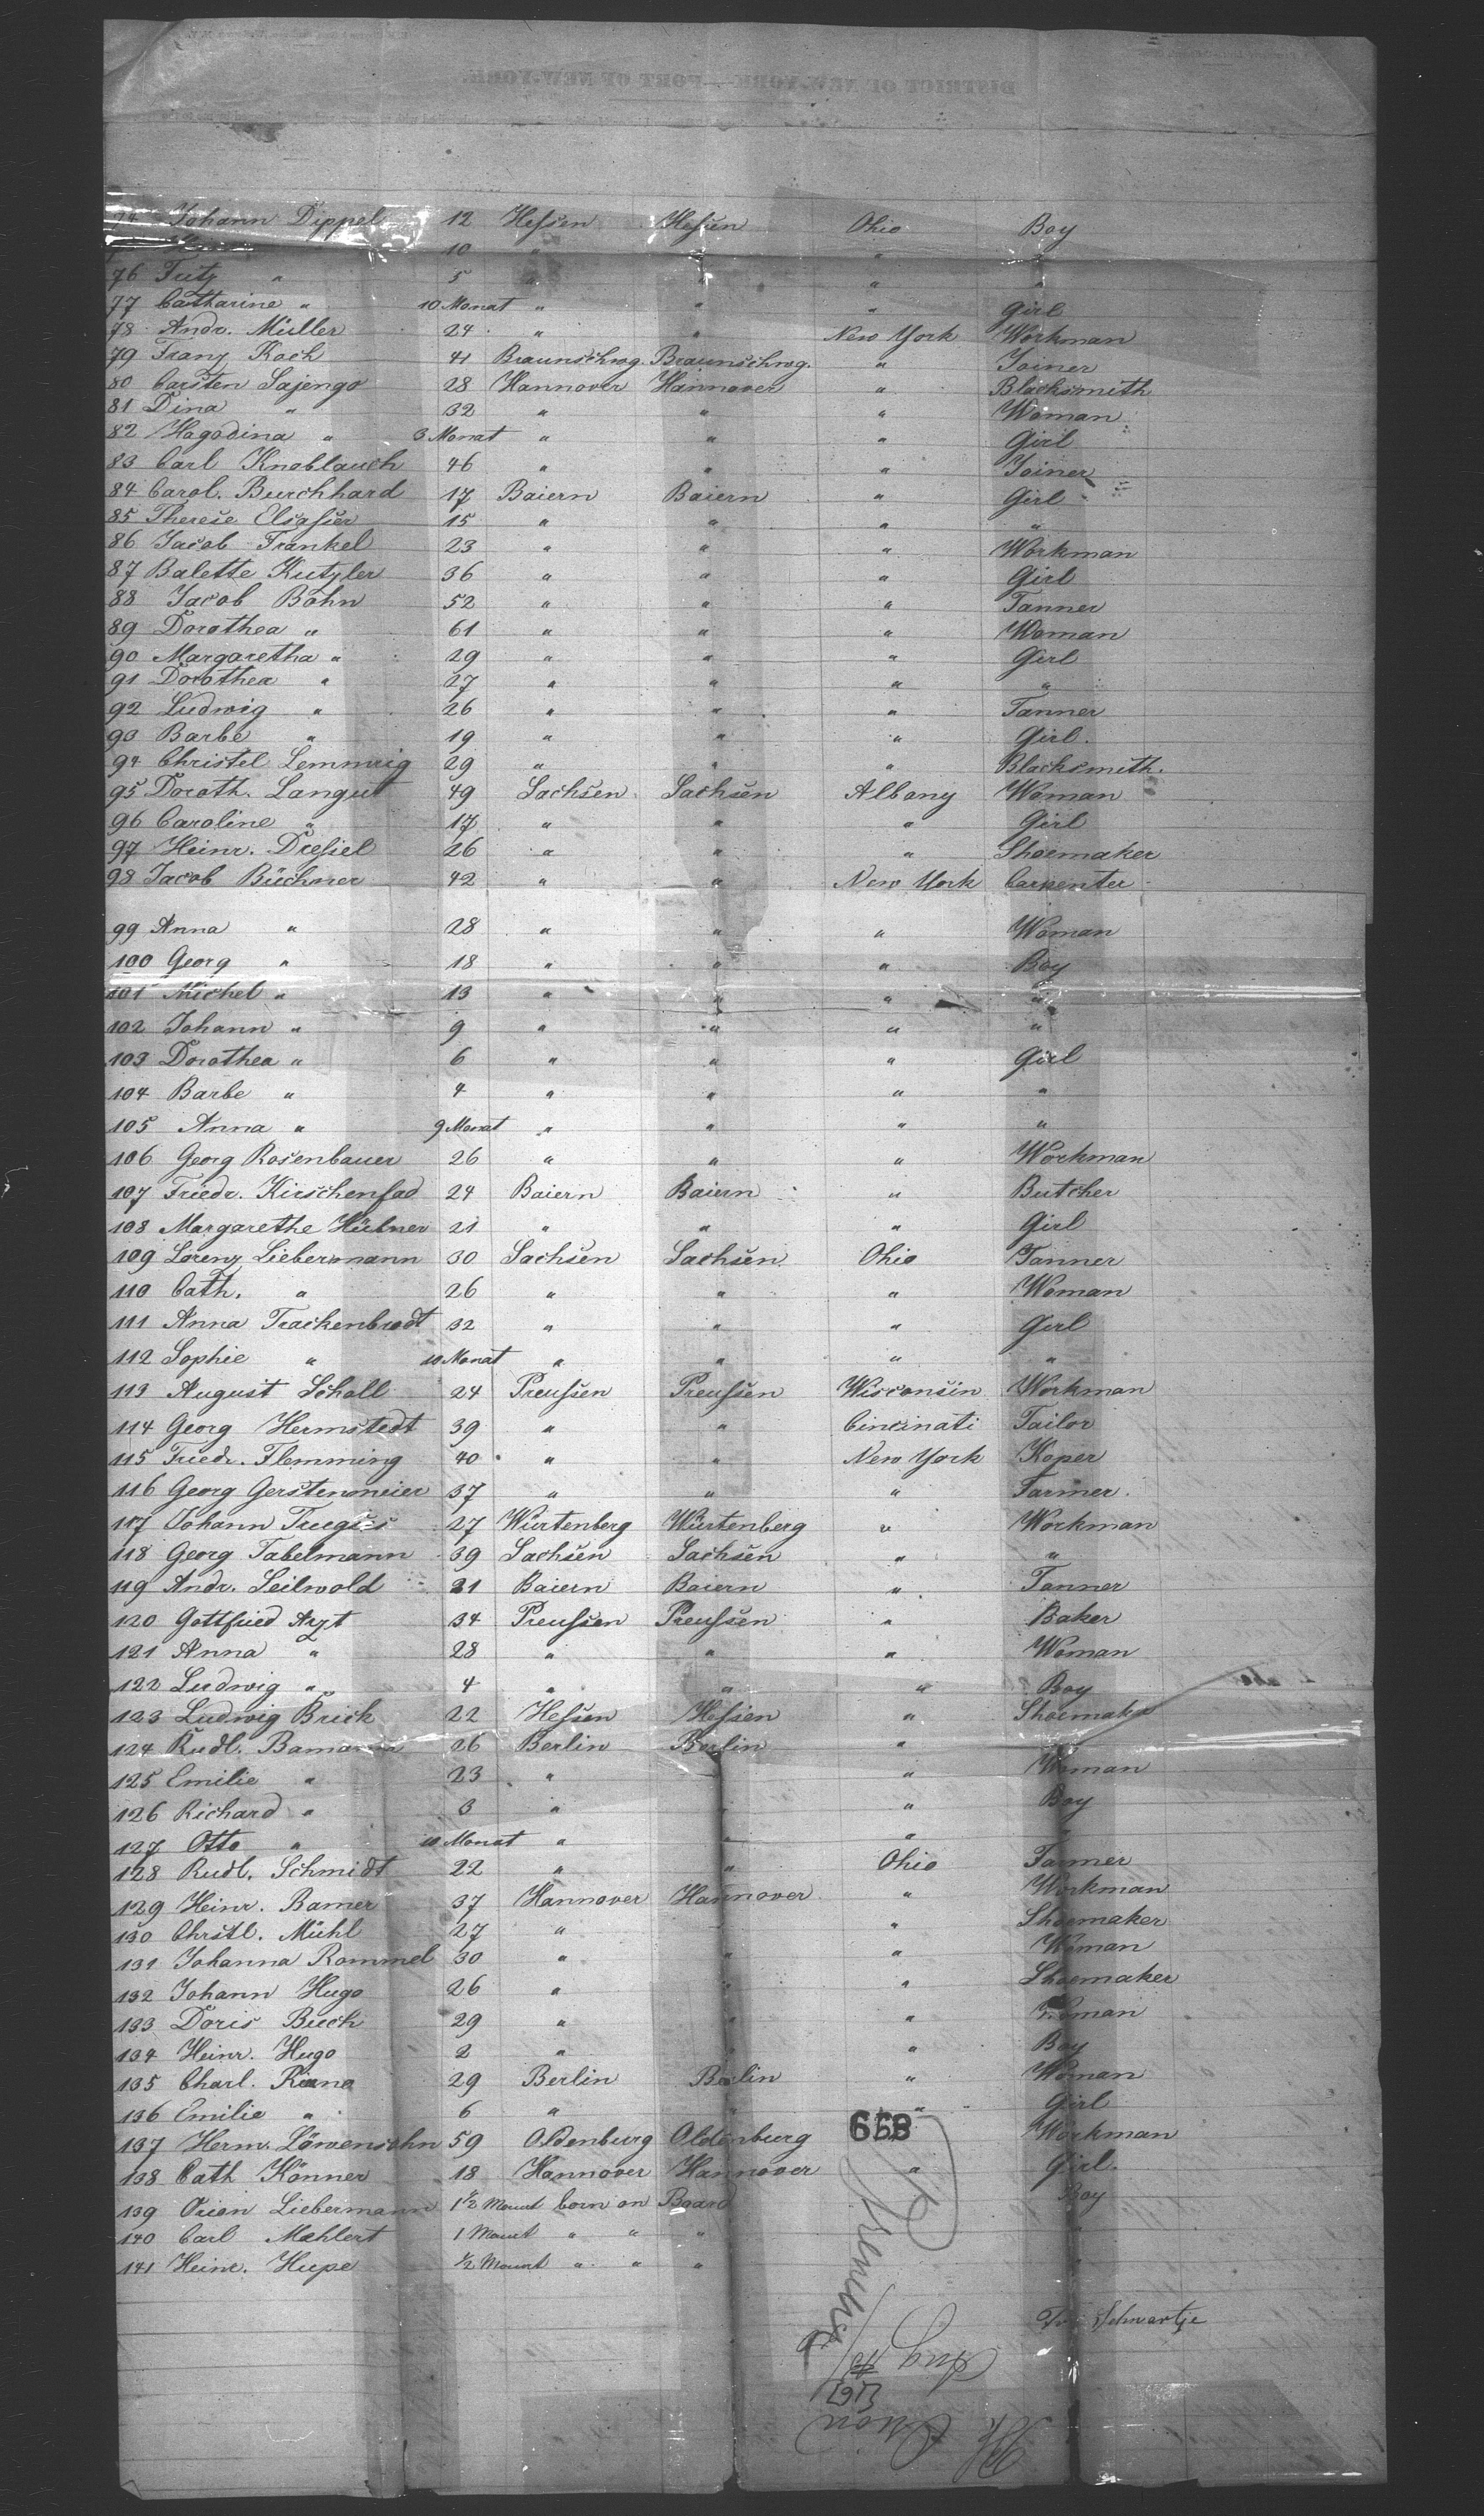 DISTRICT OF NEW-YORK—PORT OF NEW-YORK.
74 Johann Dippel 12 Hessen Hessen Ohio Boy
10 " " "
76 Fritz " 5 " " " "
77 Catharine " 10 Monat " " " Girl
78 Andr. Müller 24 " " New York Workman
79 Franz Koch 41 Braunschwg. Braunschwg. " Joiner
80 Carsten Sajengo 28 Hannover Hannover " Blacksmith
81 Dina " 32 " " " Woman
82 Hagodina " 3 Monat " " " Girl
83 Carl Knoblauch 46 " " " Joiner
84 Carol. Burchhard 17 Baiern Baiern " Girl
85 Therese Elsasser 15 " " " "
86 Jacob Frankel 23 " " " Workman
87 Balette Kutzler 36 " " " Girl
88 Jacob Bohn 52 " " " Tanner
89 Dorothea " 61 " " " Woman
90 Margaretha " 29 " " " Girl
91 Dorothea " 27 " " " "
92 Ludwig " 26 " " " Tanner
90 Barbe " 19 " " " Girl.
94 Christel Lemmrig 29 " " " Blacksmith.
95 Doroth. Langut 49 Sachsen Sachsen Albany Woman
96 Caroline " 17 " " " Girl
97 Heinr. Dressel 26 " " " Shoemaker
98 Jacob Büchner 42 " " New York Carpenter
99 Anna " 28 " " " Woman
100 Georg " 18 " " " Boy
101 Michel " 13 " " " "
102 Johann " 9 " " " "
103 Dorothea " 6 " " " Girl
104 Barbe " 4 " " " "
105 Anna " 9 Monat " " " "
106 Georg Rosenbauer 26 " " " Workman
107 Friedr. Kirschenfad 24 Baiern Baiern " Butcher
108 Margarethe Hübner 21 " " " Girl
109 Lorenz Liebermann 30 Sachsen Sachsen Ohio Tanner
110 Cath. " 26 " " " Woman
111 Anna Trackenbrodt 32 " " " Girl
112 Sophie " 10 Monat " " " "
113 August Scholl 24 Preussen Preussen Wisconsin Workman
114 Georg Hermstedt 39 " " Cincinati Tailor
115 Friedr. Flemming 40 " " New York Koper
116 Georg Gerstenmeier 37 " " " Farmer.
117 Johann 27 Würtenberg Würtenberg " Workman
118 Georg Tabelmann 39 Sachsen Sachsen " "
119 Andr. Seilwold 21 Baiern Baiern " Tanner
120 Gottfried Arzt 34 Preussen Preussen " Baker
121 Anna " 28 " " " Woman
122 Ludwig " 4 " " " Boy
123 Ludwig Brick 22 Hessen Hessen " Shoemaker
124 Rudl. Bamann 26 Berlin Berlin "
125 Emilie " 23 " " Woman
126 Richard " 3 " " Boy
127 Otto " 10 Monat " " "
128 Rudl. Schmidt 22 " " Ohio Farmer
129 Heinr. Bamer 37 Hannover Hannover " Workman
130 Christl. Mühl 27 " " Shoemaker
131 Johanna Rommel 30 " " " Woman
132 Johann Hugo 26 " " " Shoemaker
133 Doris Buch 29 " " " Woman
134 Heinr. Hugo 2 " " " Boy
135 Charl. 29 Berlin Berlin " Woman
136 Emilie " 6 " " " Girl
137 Herm. Löwensohn 59 Oldenburg Oldenburg Workman
138 Cath Könner 18 Hannover Hannover " Girl.
139 Orion Liebermann 1½ Monat born on Board Boy
140 Carl Mahlert 1 Monat " " "
141 Heinr. Hupe ½ Monat " " "
668
Schwartje
Aug
Orion